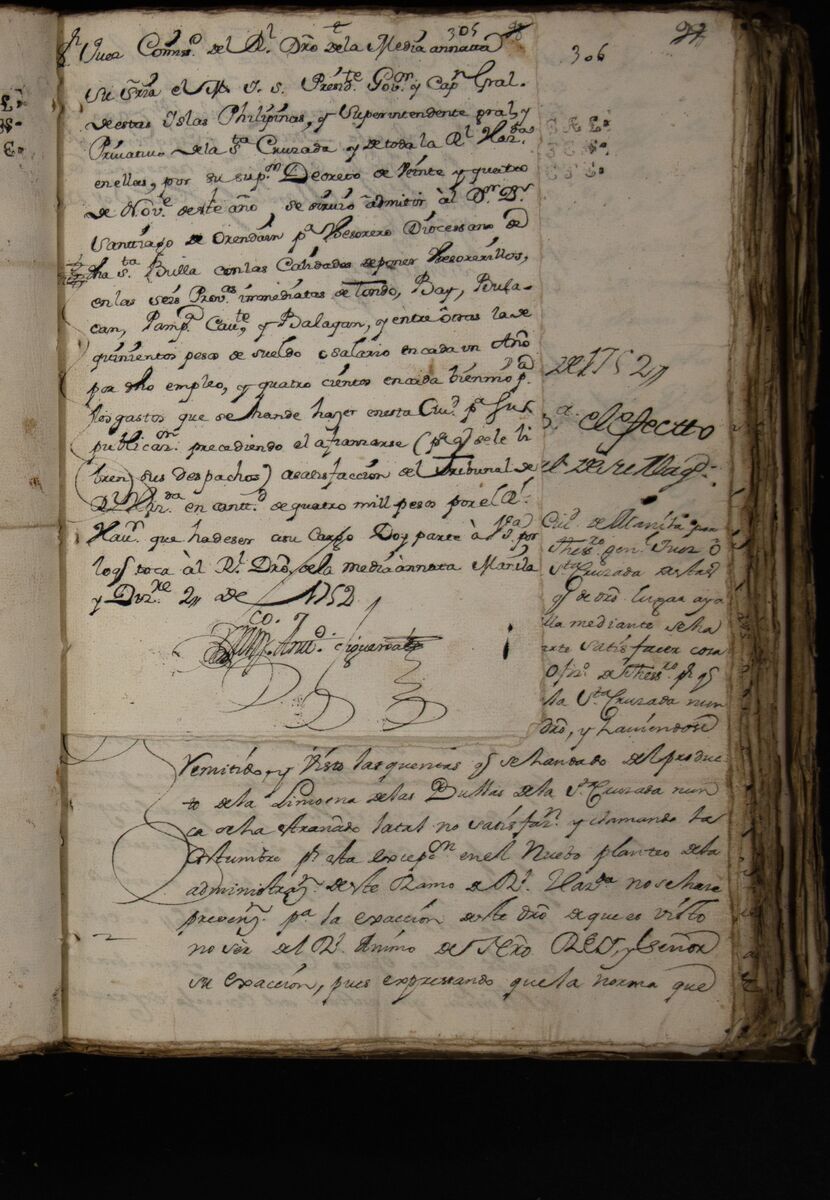 305
306
Sr. Juez Comiso. del Rl. Dro de la Media annatta
Su Sria el M. I. S. Presidte. Govor. y Capn. Gral.
de estas Yslas Philipinas, y Superintendente gral, y
Privativo de la Sta Cruzada y de toda la Rl. Hazda
en ellas, por su supor. Decreto de Veinte y quatro
de Nove. de este año, se sirvió admitir al Dn. Dr.
Santiago de Orendáin pa. Thesorero Diocessano de
dha Sta. Bulla con las Calidades de poner Thesorerillos,
en las seis Provas. immediatas de Tondo, Bay, Bula-
can, Pampa. Cavte. y Balayan, y entre otras la de
quinientos pesos de sueldo o salario en cada un Año
por dho empleo, y quatro cientos en cada bienniō pa.
los gastos que se han de hazer en esta Ciud. pa. su
publicaon. precediendo el afianzarse (pa. q se le li
bren sus despachos) a satisfacción del Tribunal de
Rl. Hazda. en cantd. de quatro mill pesos por el Rl.
Hav. que ha de ser a su Cargo Doy parte à Vsa. por
lo q toca àl Rl. Dro. de la media annata Manila
y Dizre. 2 de 1752
de 1752
el efectto
de su Mag.
Ciud. de Manila
Thesro. genl. Juez o
Sta Cruzada
q de dro. lugar aya
lla mediante se ha
satisfacer cosa
Ofizo. de Thesro. pr q
la Sta Cruzada nun
dro, y haviendose
Remitido, y Visto las quentas q se han dado del produc
to de la Limosna de las Bullas de la Sta Cruzada nun
ca se ha
costumbre pr esta excepon en el Nuebo planteo de la
administraon. de este Ramo de Rl. Hazda no se hace
prevenon. pa la exacción de este dro de que es visto
no ser del Rl. Animo de Nro Rey, y Señor
su exacción, pues expressando que la norma que